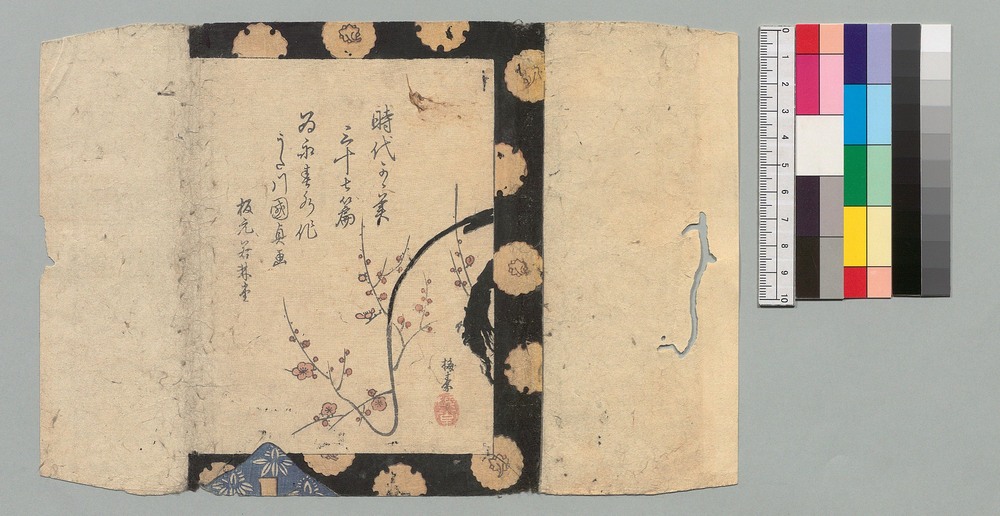 時代かゞ美
三十七篇
為永春水作
うた川國貞画
板元若林堂
梅素
0
1
2
3
4
5
6
7
8
9
10